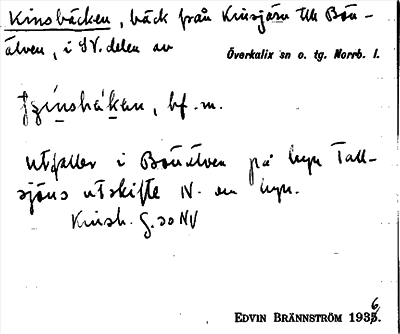 Kinsbäcken, bäck från Kinsjärn till Bön-
älven, i SV. delen av
Överkalix sn o. tg. Norrb. l.
bf. m.
utfaller i Bönälven på byn Tall-
sjöns utskifte N. om byn.
Kinsb. G. 30 NV
EDVIN BRÄNNSTRÖM 1936.